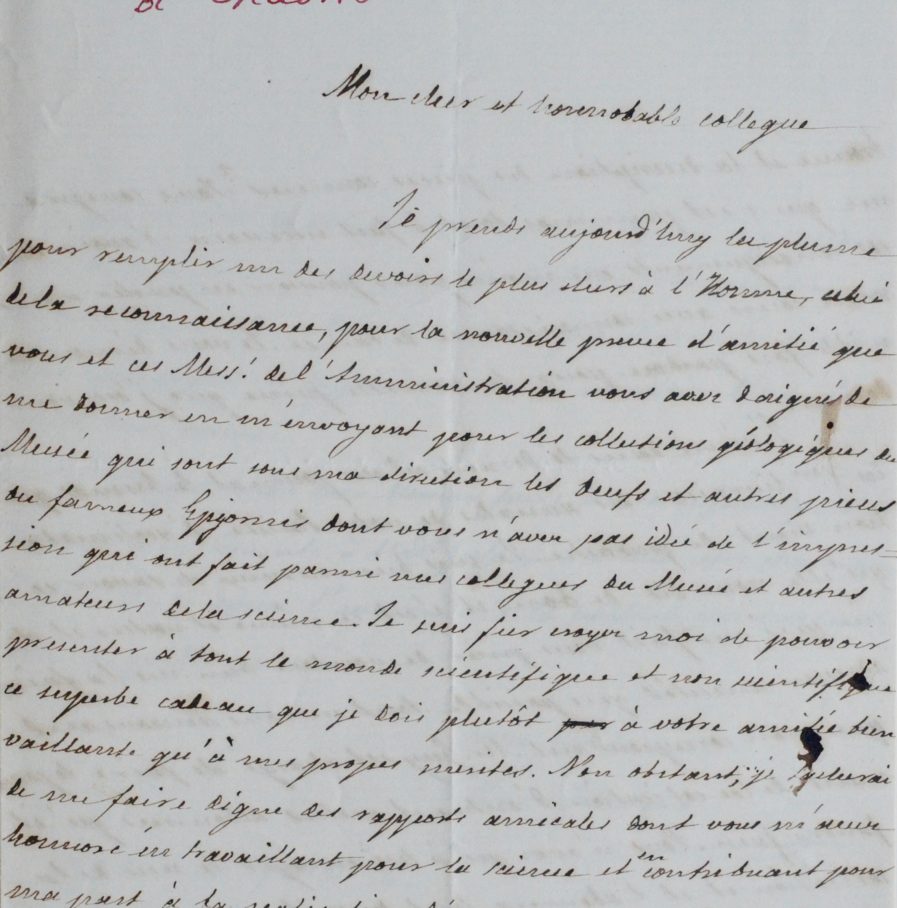 Mon cher et honnorable collegue
Je prends aujourd'huy la plume
pour remplir un des devoirs le plus chers à l'Homme, celui
de la reconnaissance, pour la nouvelle preuve d'amitié que
vous et ces Mess.! de l'Amministration vous avez daignés de
me donner en m'envoyant pour les collections géologiques du
Musée qui sont sous ma direction les oeufs et autres pieces
du fameux Epyornis dont vous n'avez pas idée de l'impres=
sion qui ont fait parmi mes collegues du Musée et autres
amateurs de la science. Je suis fier croyez moi de pouvoir
presenter à tout le monde scientifique et non scientifique
ce superbe cadeau que je dois plutôt à votre amitié bien
vaillante qu'à mes propes merites. Non obstant, je
de me faire digne des rapports amicales dont vous m'avez
honnoré en travaillant pour la science et en contribuant pour
ma part à la